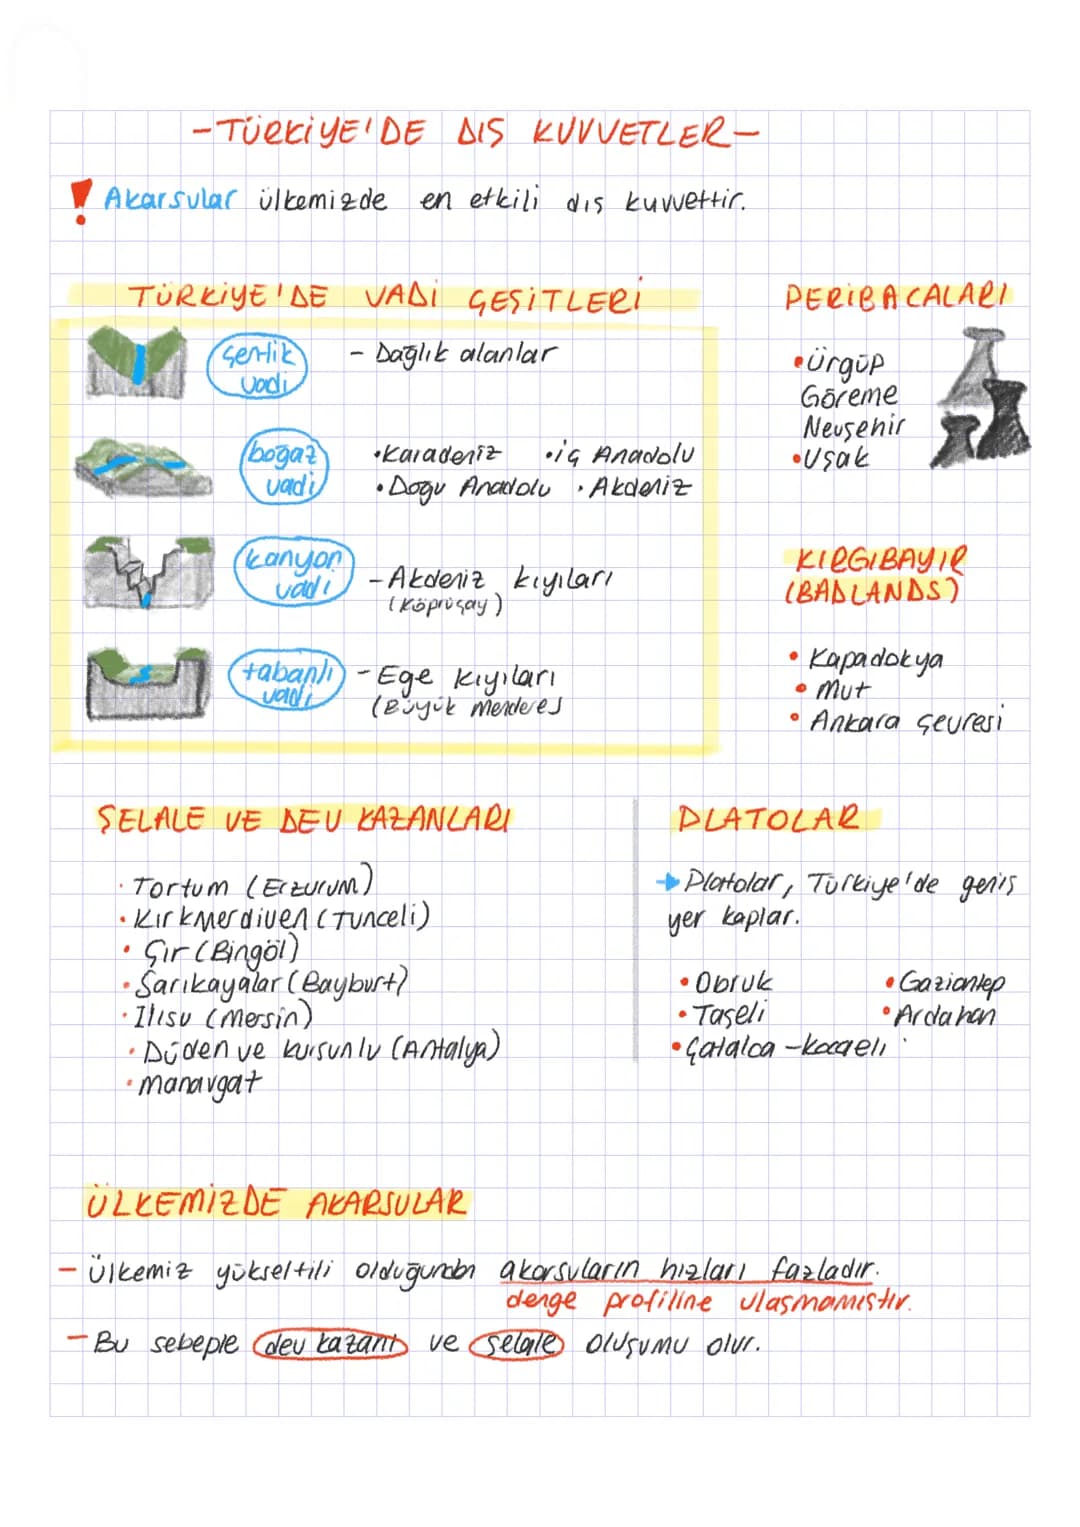 -TÜRKİYE'DE DIŞ KUVVETLER-
! Akarsular ülkemizde en etkili dış kuvvettir.
TÜRKİYE'DE VADİ ÇEŞİTLERİ
çentik vadi - Dağlık alanlar
boğaz vadi •Karadeniz •iç Anadolu
•Dogu Anadolu •Akdeniz
kanyon vadi - Akdeniz kıyıları
(Köprüçay)
tabanlı vadi - Ege kıyıları
(Büyük Menderes)
PERİBACALARI
•Ürgüp
Göreme
Nevşehir
•Uşak
KIRGIBAYIR
(BADLANDS)
• Kapadokya
• Mut
• Ankara çevresi
ŞELALE VE DEV KAZANLARI
• Tortum (Erzurum)
• Kırkmerdiven (Tunceli)
• Çır (Bingöl)
• Sarıkayalar (Bayburt)
• Ilısu (Mersin)
• Düden ve kurşunlu (Antalya)
• manavgat
PLATOLAR
→ Platolar, Türkiye'de geniş
yer kaplar.
• Obruk • Gaziantep
• Taşeli • Ardahan
• Çatalca - kocaeli
ÜLKEMİZDE AKARSULAR
- Ülkemiz yükseltili olduğundan akarsuların hızları fazladır.
denge profiline ulaşmamıştır.
- Bu sebeple dev kazanı ve şelale oluşumu olur.